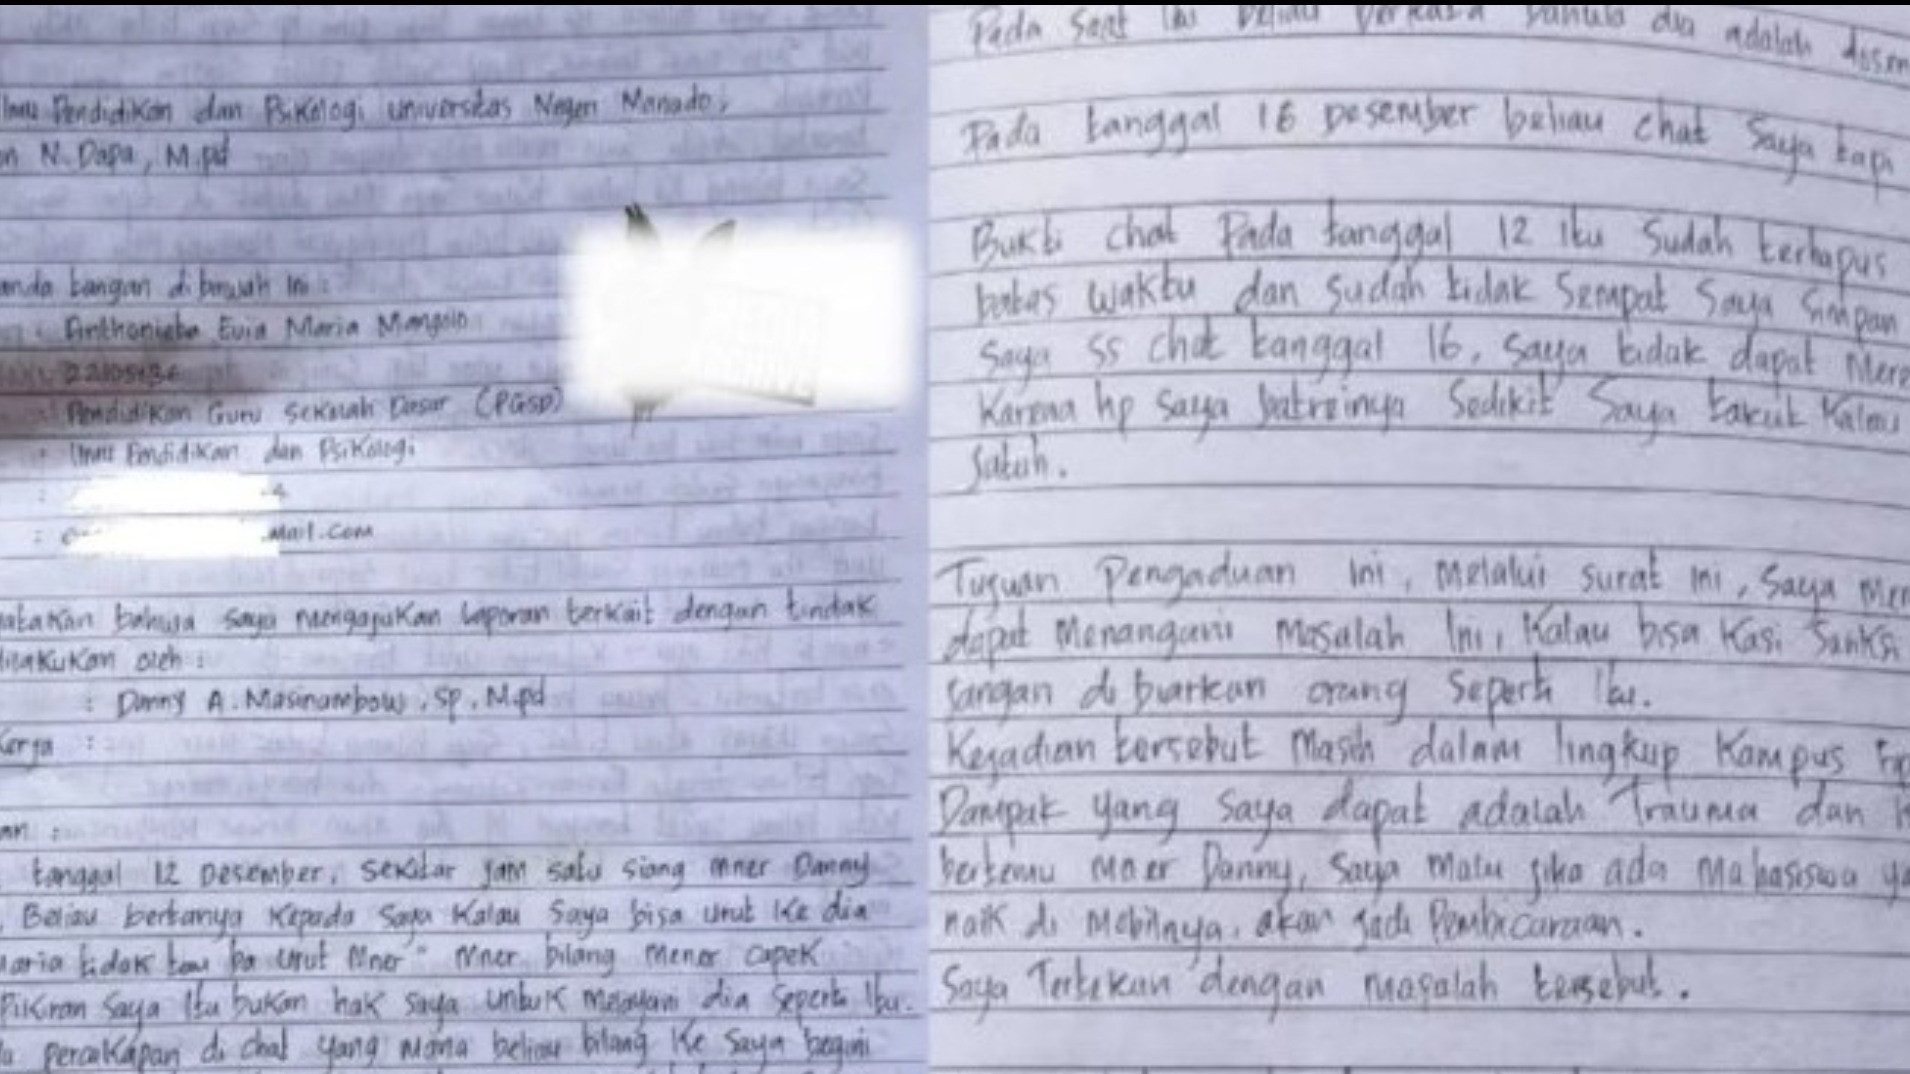 Ilmu Pendidikan dan Psikologi Universitas Negeri Manado,
N. Dapa, M.pd
anda tangan di bawah ini :
: Anthonieta Evia Maria Mangolo
: Pendidikan Guru Sekolah Dasar (PGSD)
: Ilmu Pendidikan dan Psikologi
:
: mail.com
atakan bahwa saya mengajukan laporan terkait dengan tindak
dilakukan oleh :
: Danny A. Masinambow, SP, M.pd
Kerja :
an :
tanggal 12 Desember, sekitar jam satu siang mner Danny
. Beliau bertanya kepada saya kalau saya bisa urut ke dia
maria tidak tau ba urut Mner" Mner bilang mener capek
Pikiran saya itu bukan hak saya untuk melayani dia seperti itu.
percakapan di chat yang mana beliau bilang ke saya begini
Pada saat itu beliau berkata bahwa dia adalah dosen
Pada tanggal 16 Desember beliau chat saya tapi
Bukti chat Pada tanggal 12 itu sudah terhapus
batas waktu dan sudah tidak sempat saya simpan
saya ss chat tanggal 16, saya tidak dapat Mere
Karena hp saya batreinya sedikit saya takut kalau
jatuh.
Tujuan Pengaduan ini, melalui surat ini, saya Mem
dapat Menangani masalah ini, kalau bisa kasi sanksi
jangan di biarkan orang seperti itu.
Kejadian tersebut Masih dalam lingkup Kampus Fip
Dampak yang saya dapat adalah Trauma dan
bertemu Mner Danny, saya malu jika ada mahasiswa ya
naik di mobilnya, akan jadi Pembicaraan.
Saya Tertekan dengan masalah tersebut.